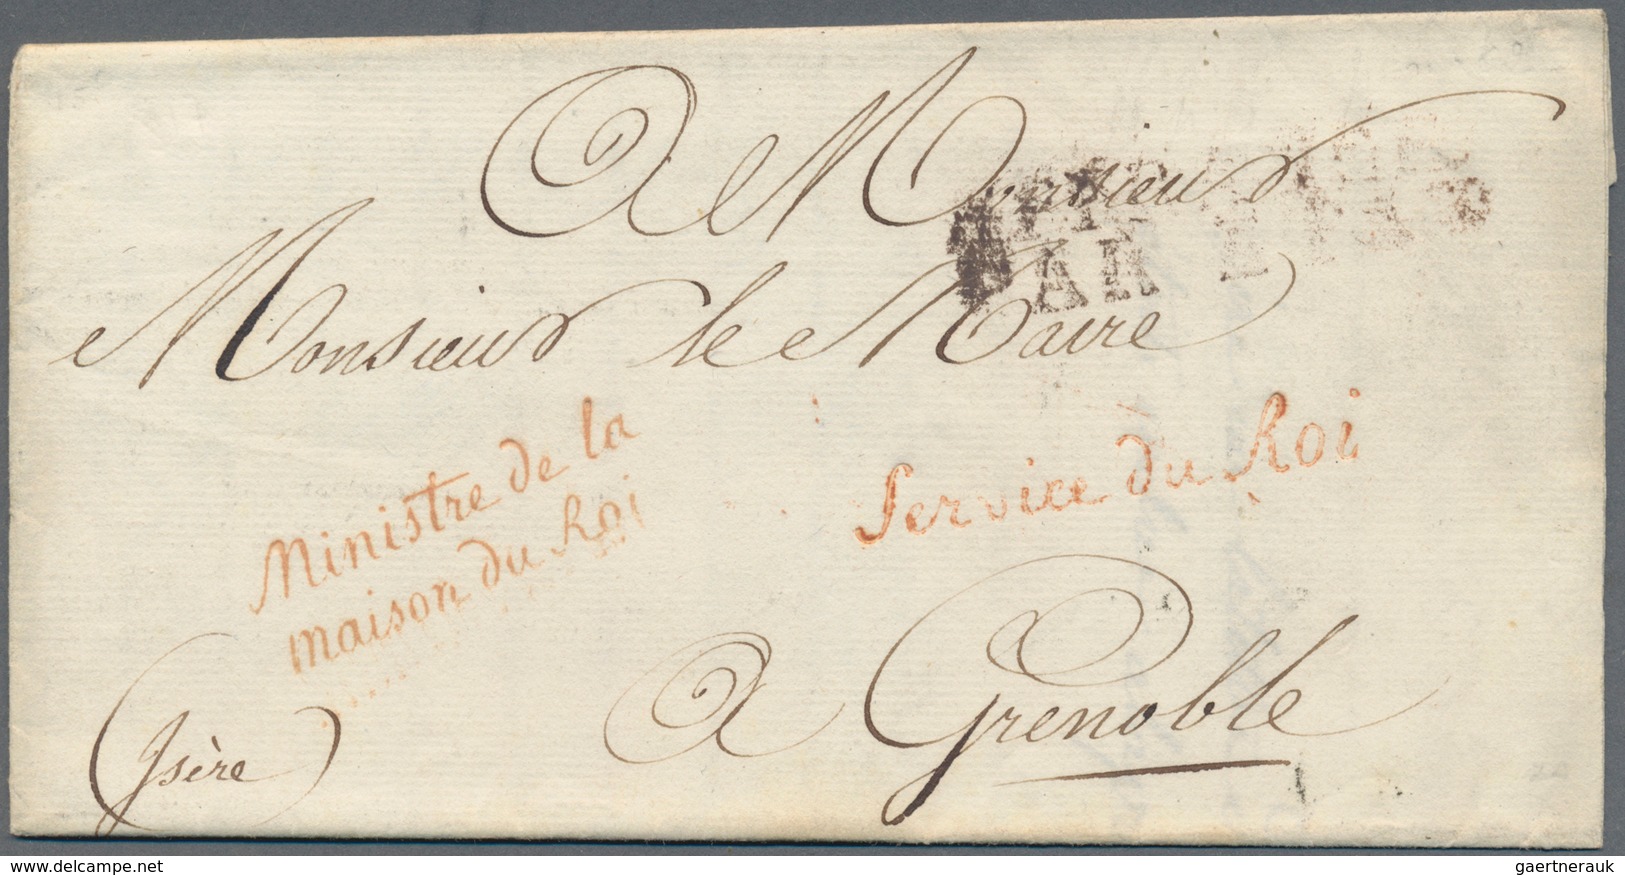 A Monsieur
Monsieur le Maire
Ministre de la
maison du Roi
Service du Roi
PAR
A Grenoble
(Isère)
www.delcampe.net
gaertnerauk